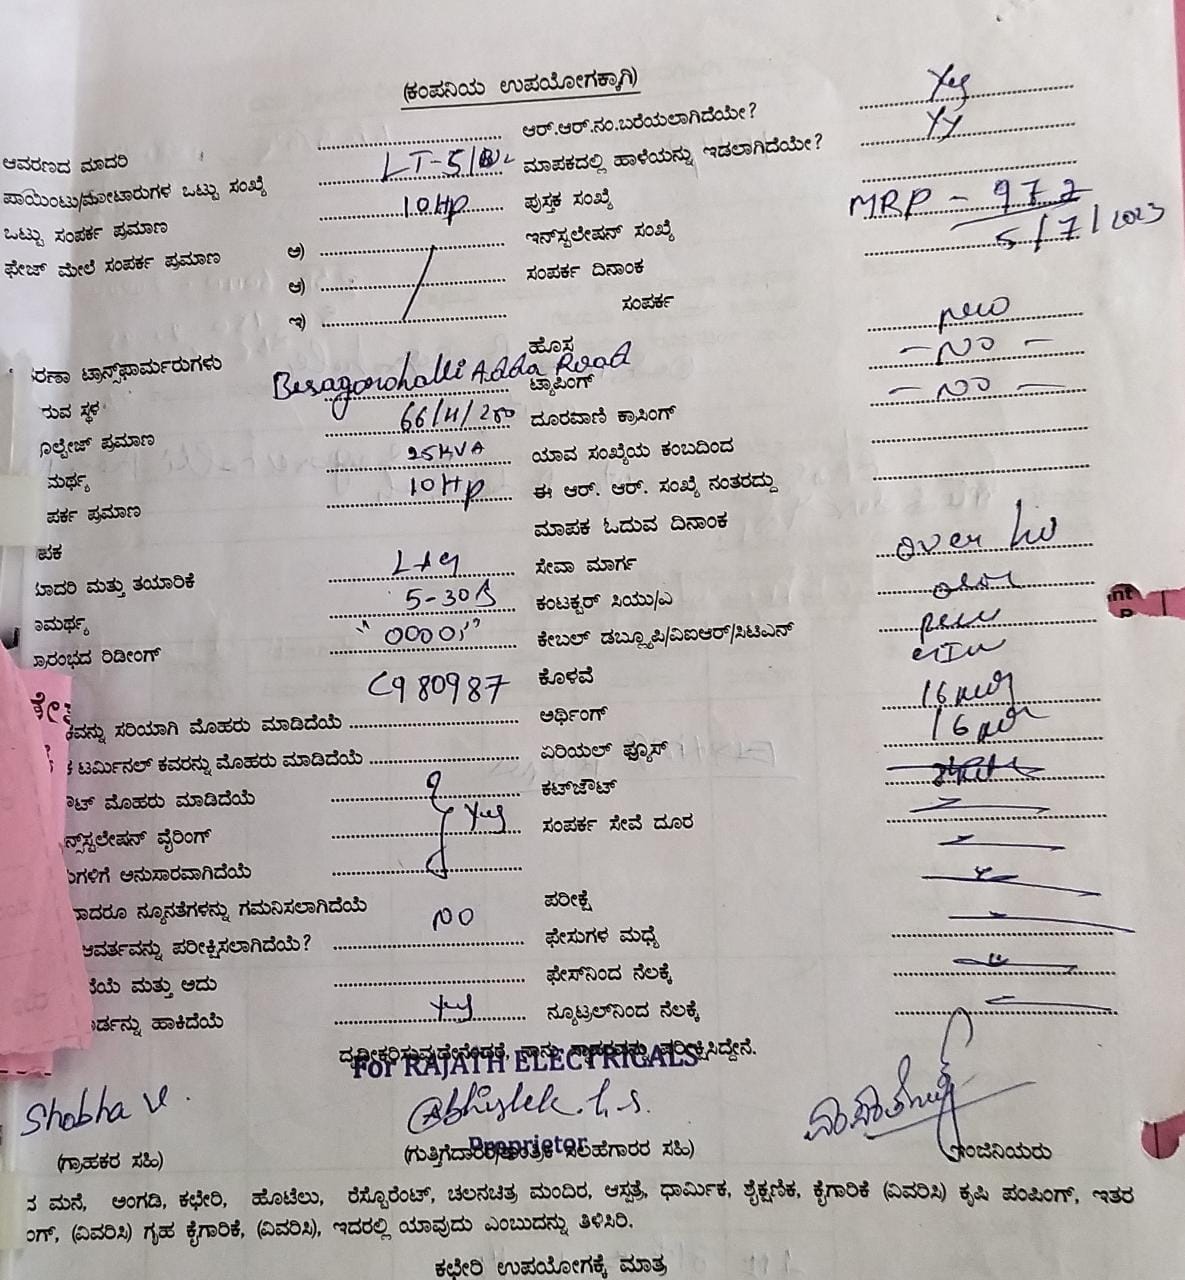 (ಕಂಪನಿಯ ಉಪಯೋಗಕ್ಕಾಗಿ)
ಆವರಣದ ಮಾದರಿ ಆರ್.ಆರ್.ನಂ.ಬರೆಯಲಾಗಿದೆಯೇ? Yes
ಪಾಯಿಂಟು/ಮೋಟಾರುಗಳ ಒಟ್ಟು ಸಂಖ್ಯೆ LT-5/ ಮಾಪಕದಲ್ಲಿ ಹಾಳೆಯನ್ನು ಇಡಲಾಗಿದೆಯೇ? YY
ಒಟ್ಟು ಸಂಪರ್ಕ ಪ್ರಮಾಣ 10HP ಪುಸ್ತಕ ಸಂಖ್ಯೆ
ಫೇಜ್ ಮೇಲೆ ಸಂಪರ್ಕ ಪ್ರಮಾಣ ಅ) ಇನ್‌ಸ್ಟಲೇಷನ್ ಸಂಖ್ಯೆ MRP - 972
ಆ) ಸಂಪರ್ಕ ದಿನಾಂಕ 5/7/2023
ಇ) ಸಂಪರ್ಕ
ರಣಾ ಟ್ರಾನ್ಸ್‌ಫಾರ್ಮರುಗಳು ಹೊಸ new
ರುವ ಸ್ಥಳ Besagarahalli Adda Road ಟ್ಯಾಪಿಂಗ್ - NO -
ಲ್ಟೇಜ್ ಪ್ರಮಾಣ 66/11/250 ದೂರವಾಣಿ ಕ್ರಾಸಿಂಗ್ - NO -
ಮರ್ಥ್ಯ 25KVA ಯಾವ ಸಂಖ್ಯೆಯ ಕಂಬದಿಂದ
ಪರ್ಕ ಪ್ರಮಾಣ 10HP ಈ ಆರ್. ಆರ್. ಸಂಖ್ಯೆ ನಂತರದ್ದು
ಪಕ ಮಾಪಕ ಓದುವ ದಿನಾಂಕ
ಾದರಿ ಮತ್ತು ತಯಾರಿಕೆ L+G ಸೇವಾ ಮಾರ್ಗ over
ಾಮರ್ಥ್ಯ 5-30A ಕಂಟಕ್ಟರ್ ಸಿಯು/ಎ
ಾರಂಭದ ರಿಡೀಂಗ್ "00001" ಕೇಬಲ್ ಡಬ್ಲ್ಯೂಪಿ/ವಿಐಆರ್/ಸಿಟಿಎನ್
C980987 ಕೊಳವೆ
ಕವನ್ನು ಸರಿಯಾಗಿ ಮೊಹರು ಮಾಡಿದೆಯೆ ಅರ್ಥಿಂಗ್ 16
ಕ ಟರ್ಮಿನಲ್ ಕವರನ್ನು ಮೊಹರು ಮಾಡಿದೆಯೆ ಏರಿಯಲ್ ಫ್ಯೂಸ್ 16
ಟ್ ಮೊಹರು ಮಾಡಿದೆಯೆ ಕಟ್‌ಔಟ್
ನ್ಸ್‌ಟಲೇಷನ್ ವೈರಿಂಗ್ Yes ಸಂಪರ್ಕ ಸೇವೆ ದೂರ
ಗಳಿಗೆ ಅನುಸಾರವಾಗಿದೆಯೆ
ಾದರೂ ನ್ಯೂನತೆಗಳನ್ನು ಗಮನಿಸಲಾಗಿದೆಯೆ ಪರೀಕ್ಷೆ
ಆವರ್ತವನ್ನು ಪರೀಕ್ಷಿಸಲಾಗಿದೆಯೆ? NO ಫೇಸುಗಳ ಮಧ್ಯೆ
ೆಯೆ ಮತ್ತು ಅದು ಫೇಸ್‌ನಿಂದ ನೆಲಕ್ಕೆ
ರ್ಡನ್ನು ಹಾಕಿದೆಯೆ Yes ನ್ಯೂಟ್ರಲ್‌ನಿಂದ ನೆಲಕ್ಕೆ
ದೃಢೀಕರಿಸುವುದೇನೆಂದರೆ, ನಾನು ಪರೀಕ್ಷಿಸಿದ್ದೇನೆ.
For RAJATH ELECTRICALS
Shobha V. Abhishek. L. S.
Proprietor
(ಗ್ರಾಹಕರ ಸಹಿ) (ಗುತ್ತಿಗೆದಾರರ ಸಲಹೆಗಾರರ ಸಹಿ) ಇಂಜಿನಿಯರು
ಮನೆ, ಅಂಗಡಿ, ಕಛೇರಿ, ಹೊಟೆಲು, ರೆಸ್ಟೊರೆಂಟ್, ಚಲನಚಿತ್ರ ಮಂದಿರ, ಆಸ್ಪತ್ರೆ, ಧಾರ್ಮಿಕ, ಶೈಕ್ಷಣಿಕ, ಕೈಗಾರಿಕೆ (ವಿವರಿಸಿ) ಕೃಷಿ ಪಂಪಿಂಗ್, ಇತರ
ಂಗ್, (ವಿವರಿಸಿ) ಗೃಹ ಕೈಗಾರಿಕೆ, (ವಿವರಿಸಿ), ಇದರಲ್ಲಿ ಯಾವುದು ಎಂಬುದನ್ನು ತಿಳಿಸಿರಿ.
ಕಛೇರಿ ಉಪಯೋಗಕ್ಕೆ ಮಾತ್ರ